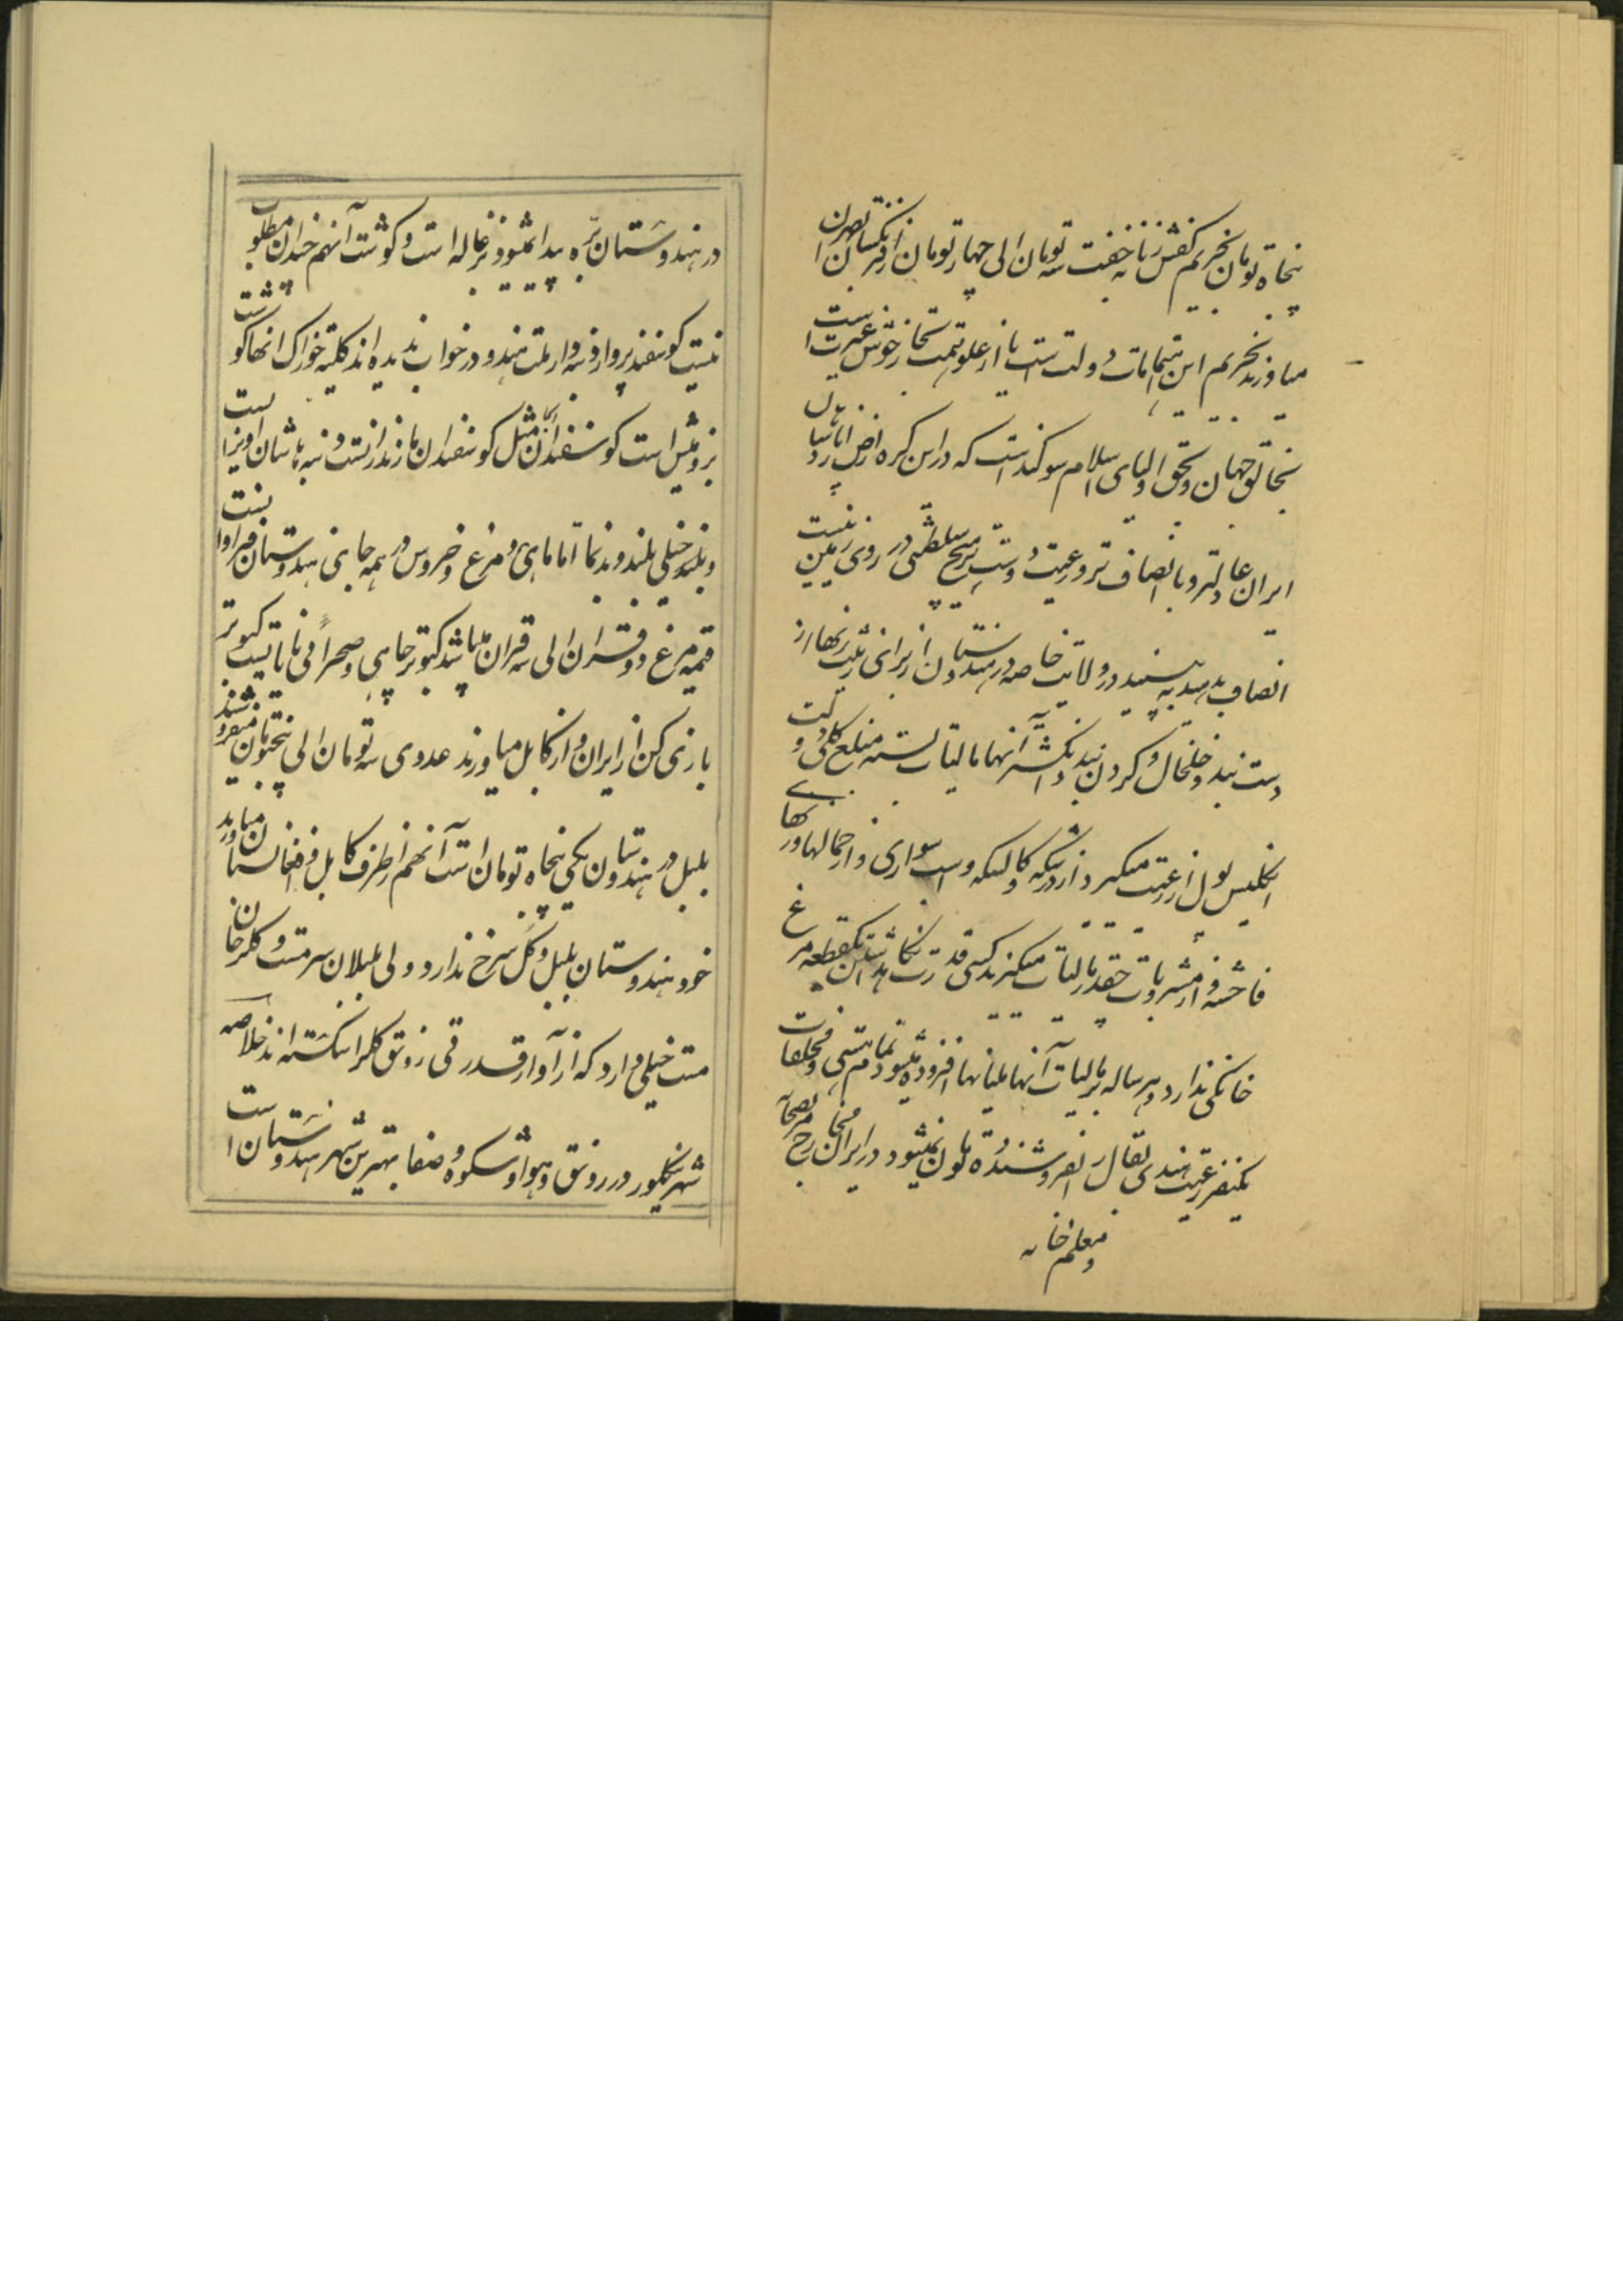 پنجاه تومان بخریم کفش زنانه جفت سه تومان الی چهار تومان از فرنگستان
میاورند بخریم این اهتمامات دولت است یا از علو همت تجار خوش غیرت است
بخالق جهان و بحق اولیای اسلام سوگند است که در این کره ارض از
ایران عادلتر و با انصاف تر و رعیت دوست تر هیچ سلطنتی در روی زمین نیست
انصاف بدهید به بینید در ولایت خاصه در هندوستان از برای زینت زنها از
دست بند و خلخال و گردن بند و انگشتر آنها مالیات بسته مبلغ کلی دولت
انگلیس پول از رعیت میگیرد از درشکه و کالسکه و اسب سواری و از حمالها و زنهای
فاحشه و از مشروبات چقدر مالیات میگیرند کسی قدرت نگاهداشتن یکقطعه مرغ
خانگی ندارد و هر ساله بر مالیات آنها افزوده میشود تمام هستی و مخلفات
یکنفر رعیت هندی بقال را بفروشند ده تومان نمیشود در ایران مخارج
و معلم خانه
در هندوستان بره پیدا نمیشود بزغاله است و گوشت آنهم چندان مطلوب
نیست گوسفند پروار و دنبه دار ملت هندو در خواب ندیده اند کلیة خوراک آنها گوشت
بز و میش است گوسفندان مثل گوسفندان مازندرانست دنبه پاشان آویزان است
و بلند خیلی بلند و بدنما اما ماهی و مرغ و خروس در همه جا بنی هندوستان فراوان است
قیمة مرغ دو قران الی سه قران میباشد کبوتر چاهی و صحرائی نایاب است کبوتر
بازی کن از ایران و از کابل میاورند عددی سه تومان الی پنجتومان میفروشند
بلبل در هندوستان یکی پنجاه تومان است آنهم از طرف کابل و افغانستان میاورند
خود هندوستان بلبل و گل سرخ ندارد ولی بلبلان سرمست و گلرخان
مست خیلی دارد که از آواز رونق گلرا شکسته اند خلاصه
شهر بنگلور در رونق و هوا و شکوه و صفا بهترین شهر هندوستان است